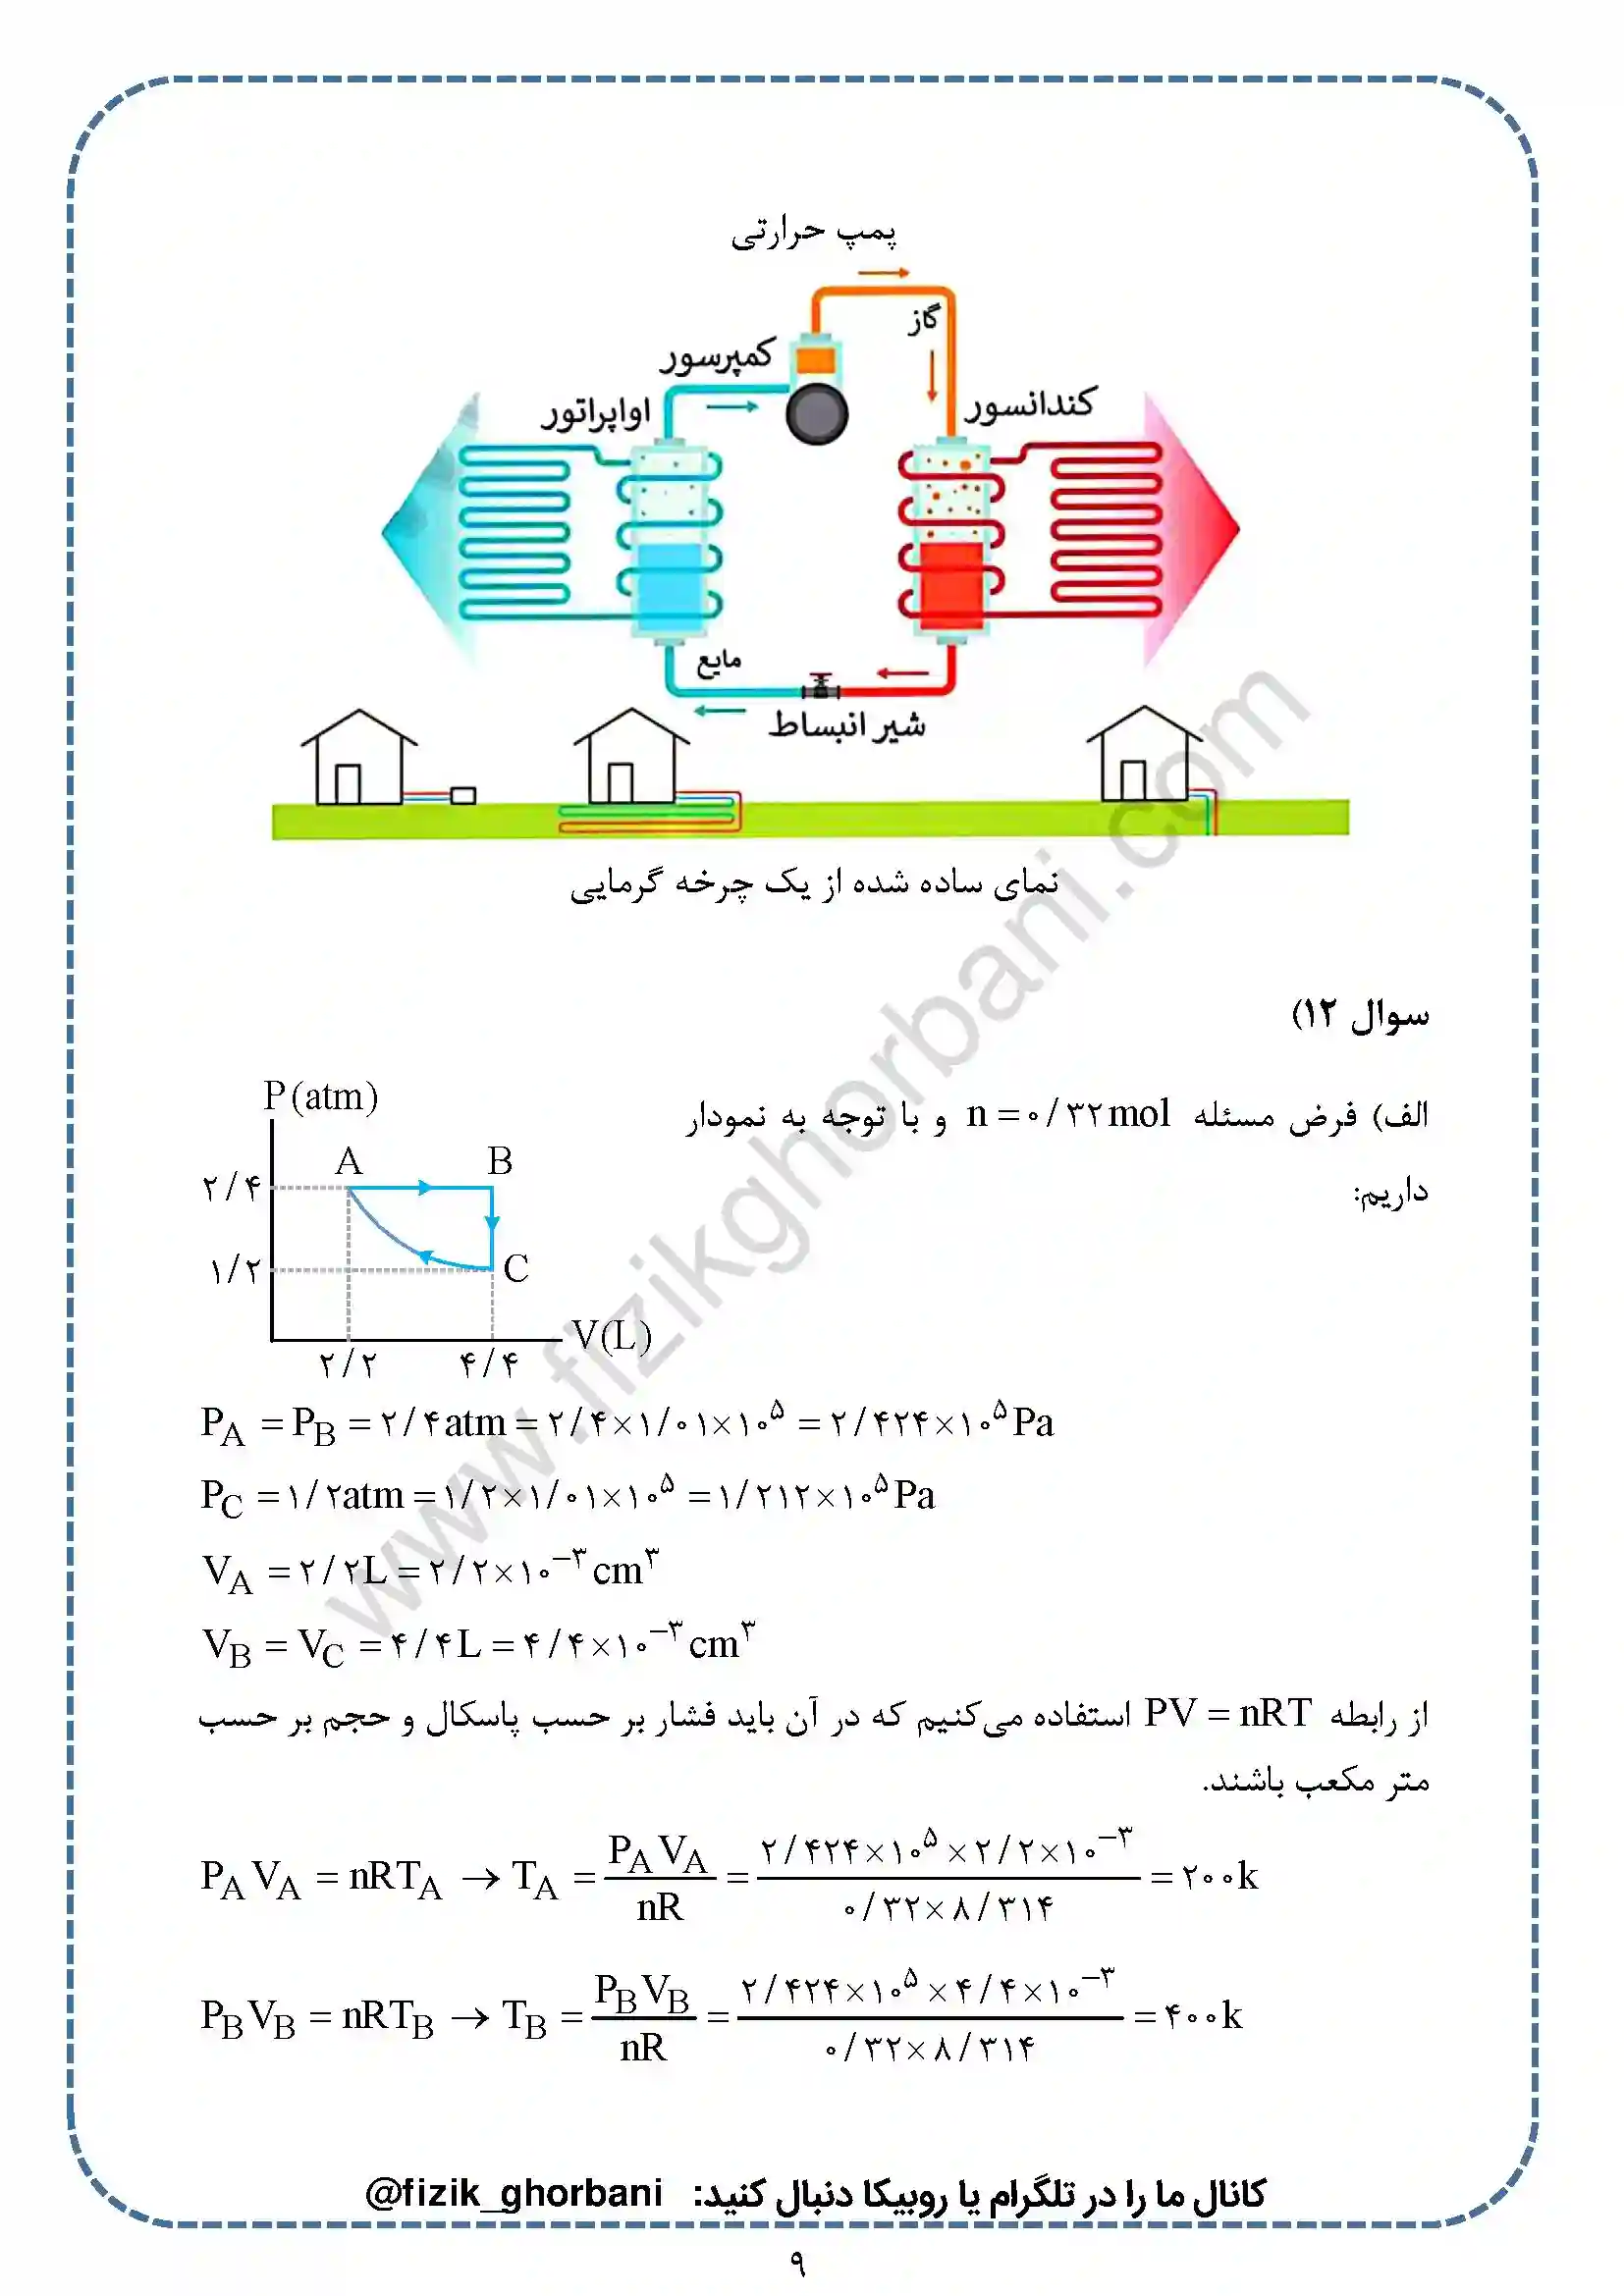 پمپ حرارتی
گاز
کمپرسور
کندانسور
اواپراتور
مایع
شیر انبساط
نمای ساده شده از یک چرخه گرمایی
سوال ۱۲)
الف) فرض مسئله n = ۰/۳۲ mol و با توجه به نمودار
داریم:
P(atm)
A
B
۲/۴
۱/۲
C
V(L)
۲/۲
۴/۴
P_A = P_B = ۲/۴ atm = ۲/۴×۱/۰۱×۱۰^۵ = ۲/۴۲۴×۱۰^۵ Pa
P_C = ۱/۲ atm = ۱/۲×۱/۰۱×۱۰^۵ = ۱/۲۱۲×۱۰^۵ Pa
V_A = ۲/۲ L = ۲/۲×۱۰^−۳ cm^۳
V_B = V_C = ۴/۴ L = ۴/۴×۱۰^−۳ cm^۳
از رابطه PV = nRT استفاده می‌کنیم که در آن باید فشار بر حسب پاسکال و حجم بر حسب
متر مکعب باشند.
P_A V_A = nRT_A → T_A = P_A V_A / nR = ۲/۴۲۴×۱۰^۵ ×۲/۲×۱۰^−۳ / ۰/۳۲×۸/۳۱۴ = ۲۰۰k
P_B V_B = nRT_B → T_B = P_B V_B / nR = ۲/۴۲۴×۱۰^۵ ×۴/۴×۱۰^−۳ / ۰/۳۲×۸/۳۱۴ = ۴۰۰k
www.fizikghorbani.com
کانال ما را در تلگرام یا روبیکا دنبال کنید: @fizik_ghorbani
۹